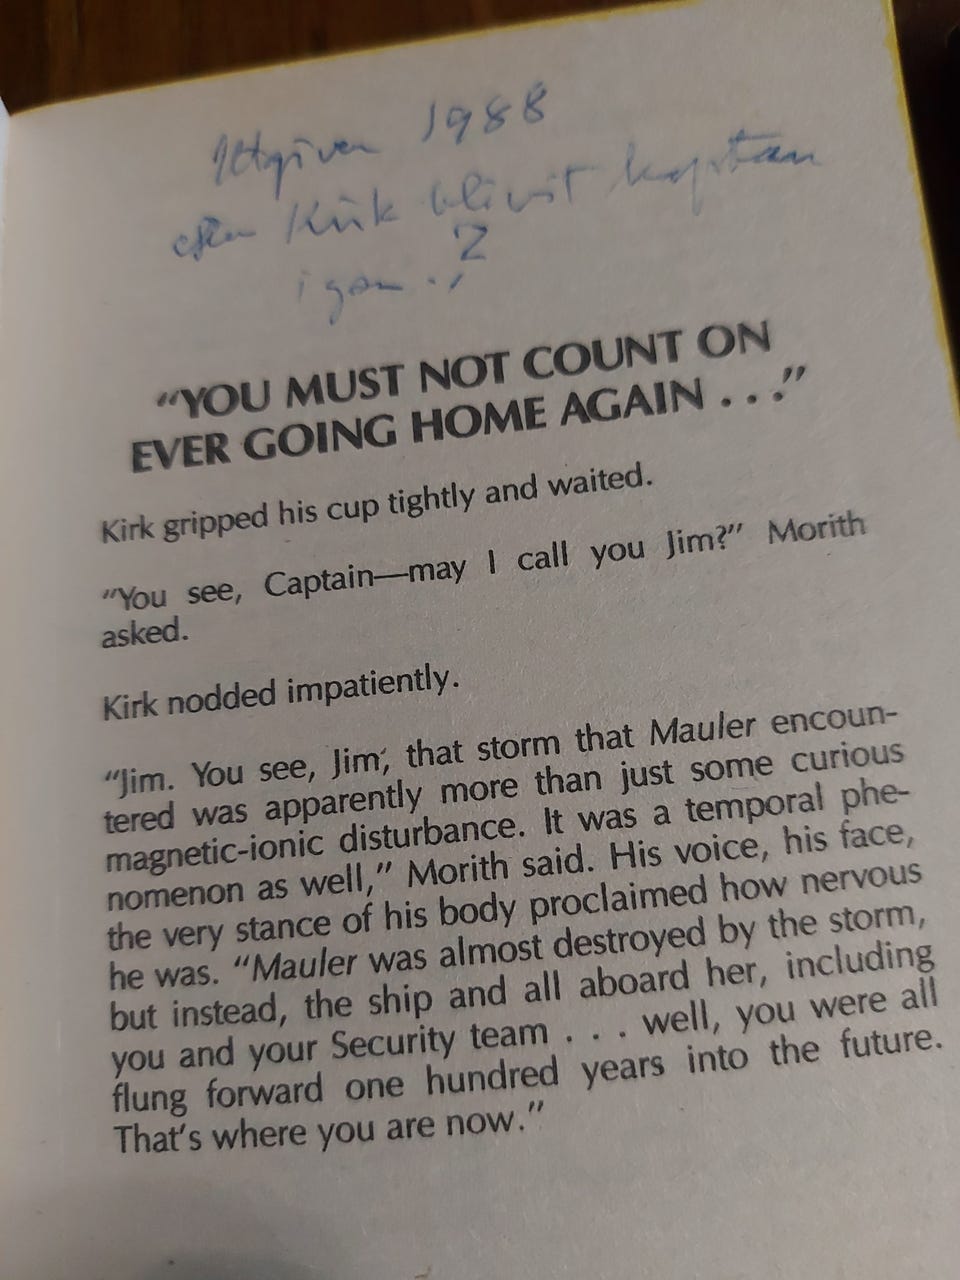 Utgiven 1988
efter Kirk blivit kapten
igen..?
"YOU MUST NOT COUNT ON
EVER GOING HOME AGAIN . . ."
Kirk gripped his cup tightly and waited.
"You see, Captain—may I call you Jim?" Morith
asked.
Kirk nodded impatiently.
"Jim. You see, Jim, that storm that Mauler encoun-
tered was apparently more than just some curious
magnetic-ionic disturbance. It was a temporal phe-
nomenon as well," Morith said. His voice, his face,
the very stance of his body proclaimed how nervous
he was. "Mauler was almost destroyed by the storm,
but instead, the ship and all aboard her, including
you and your Security team . . . well, you were all
flung forward one hundred years into the future.
That's where you are now."